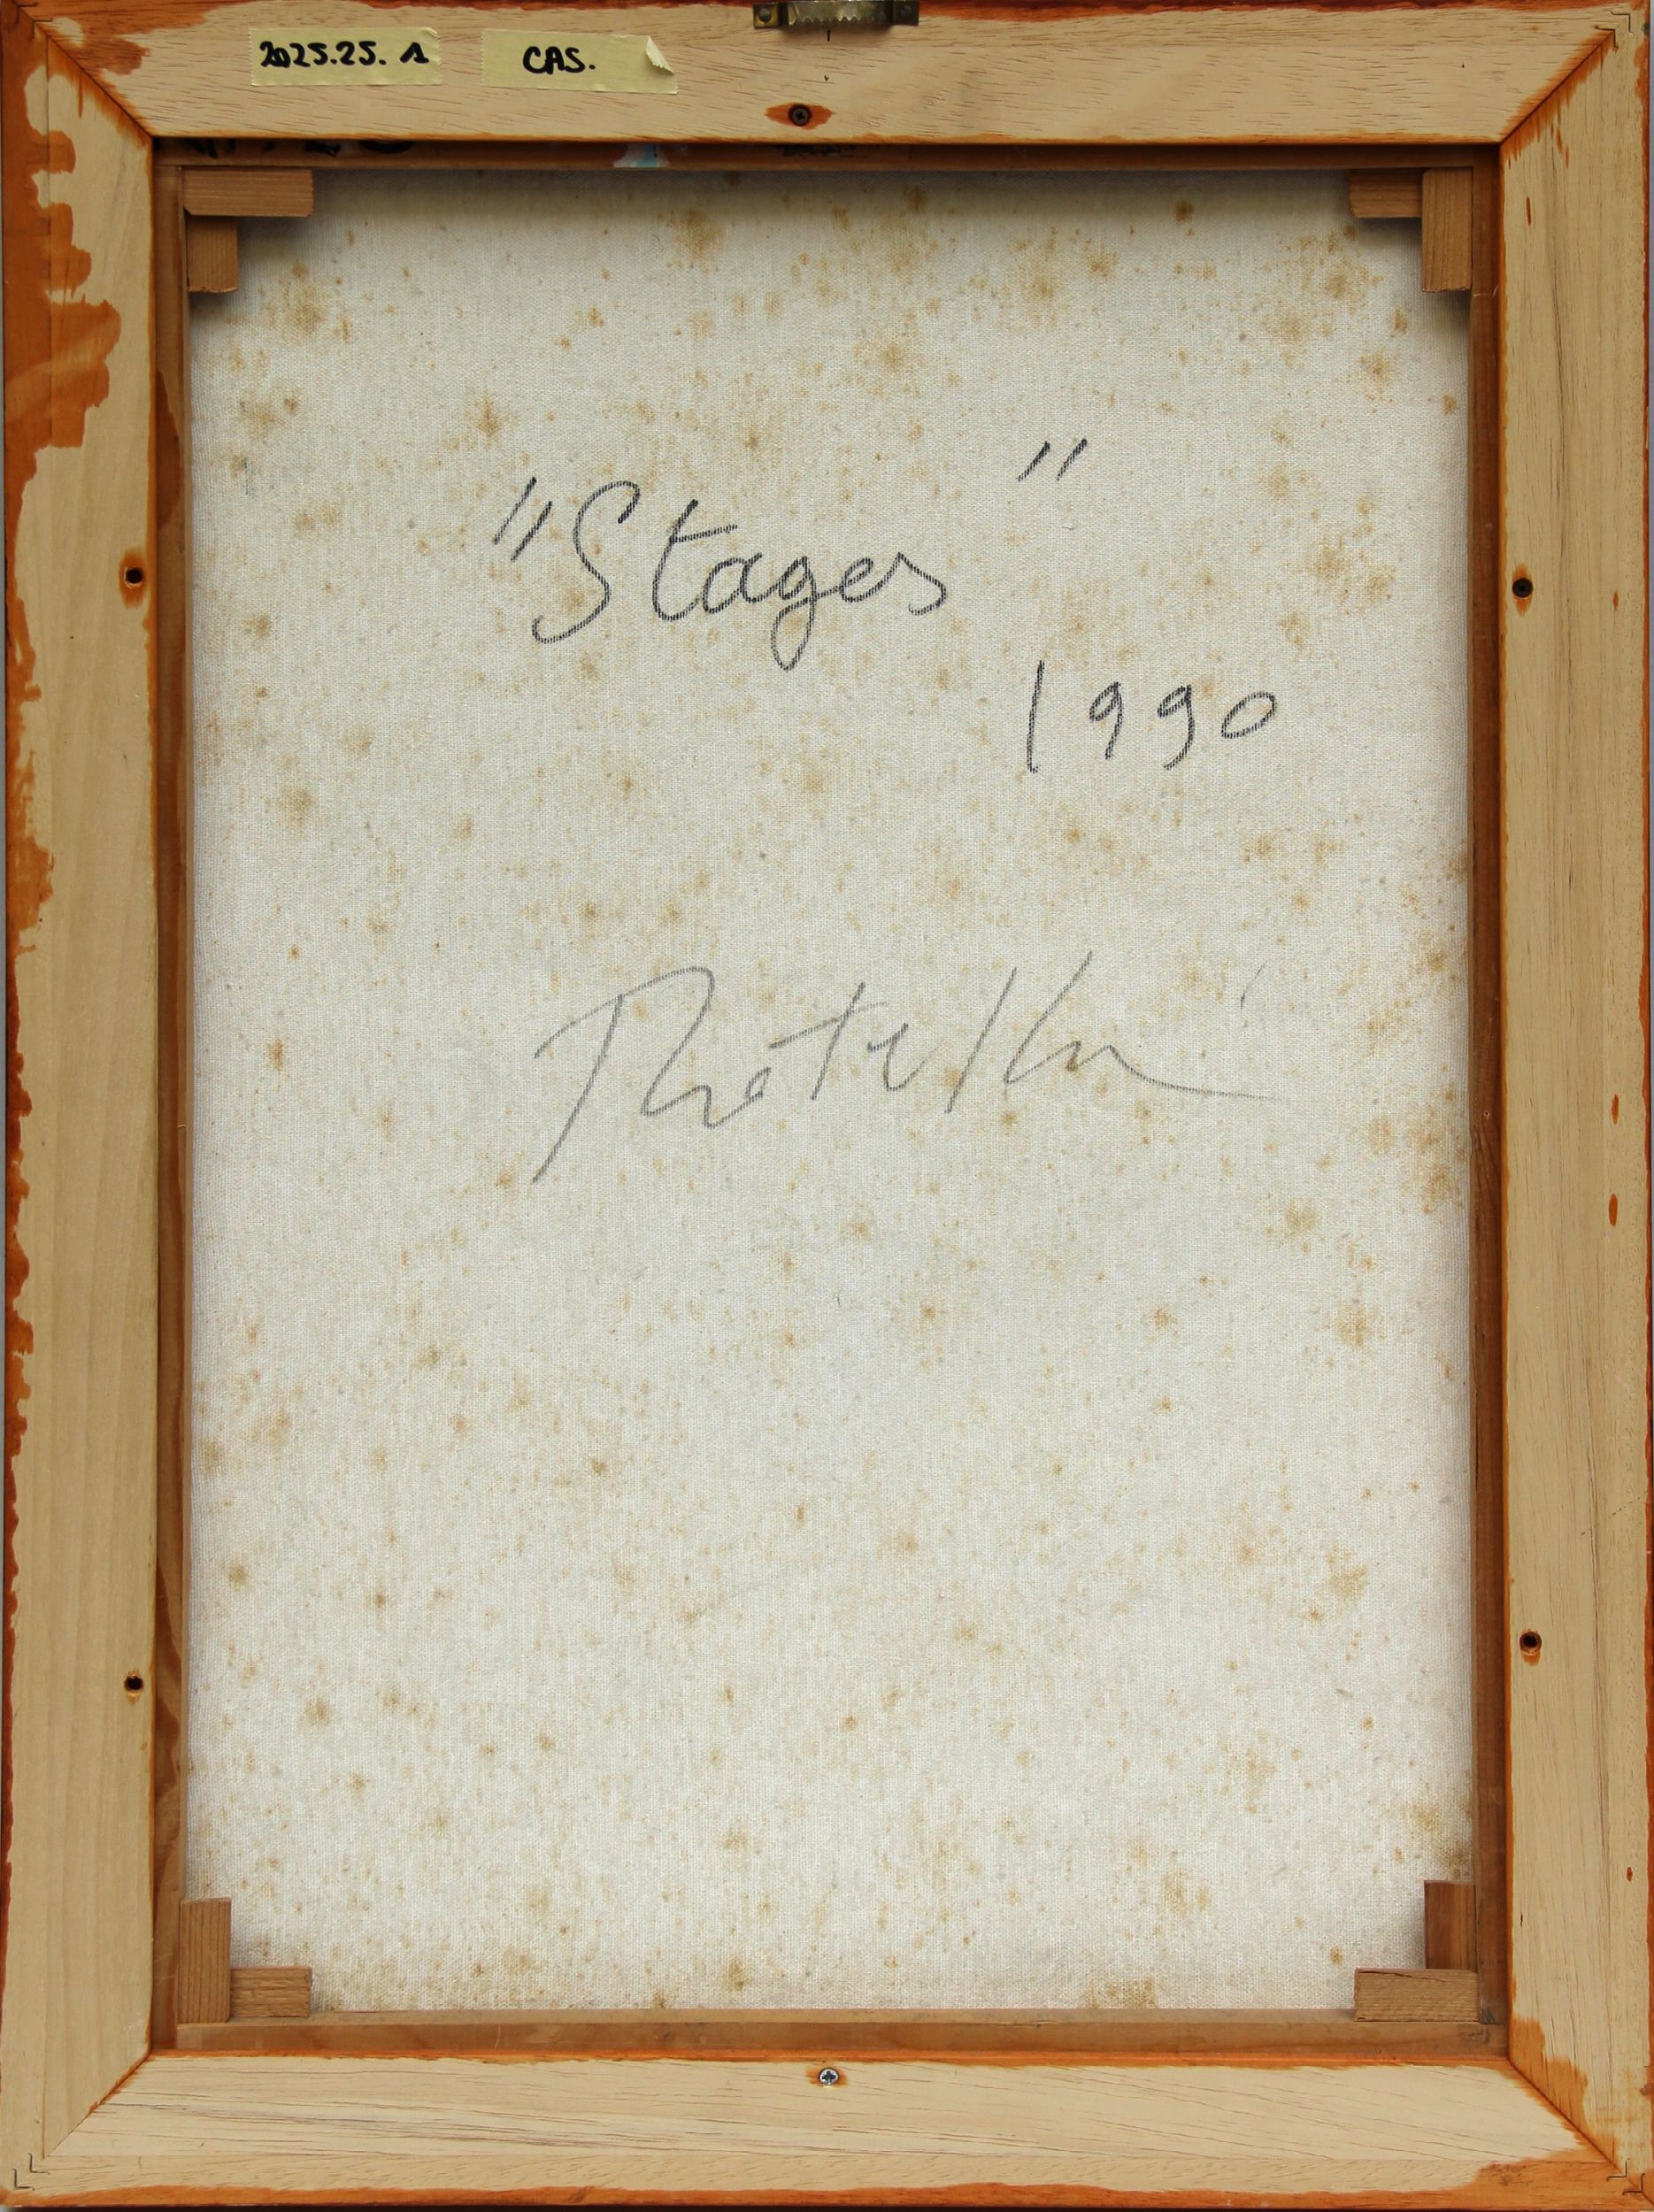 2025.25.1 CAS.
"Stages"
1990